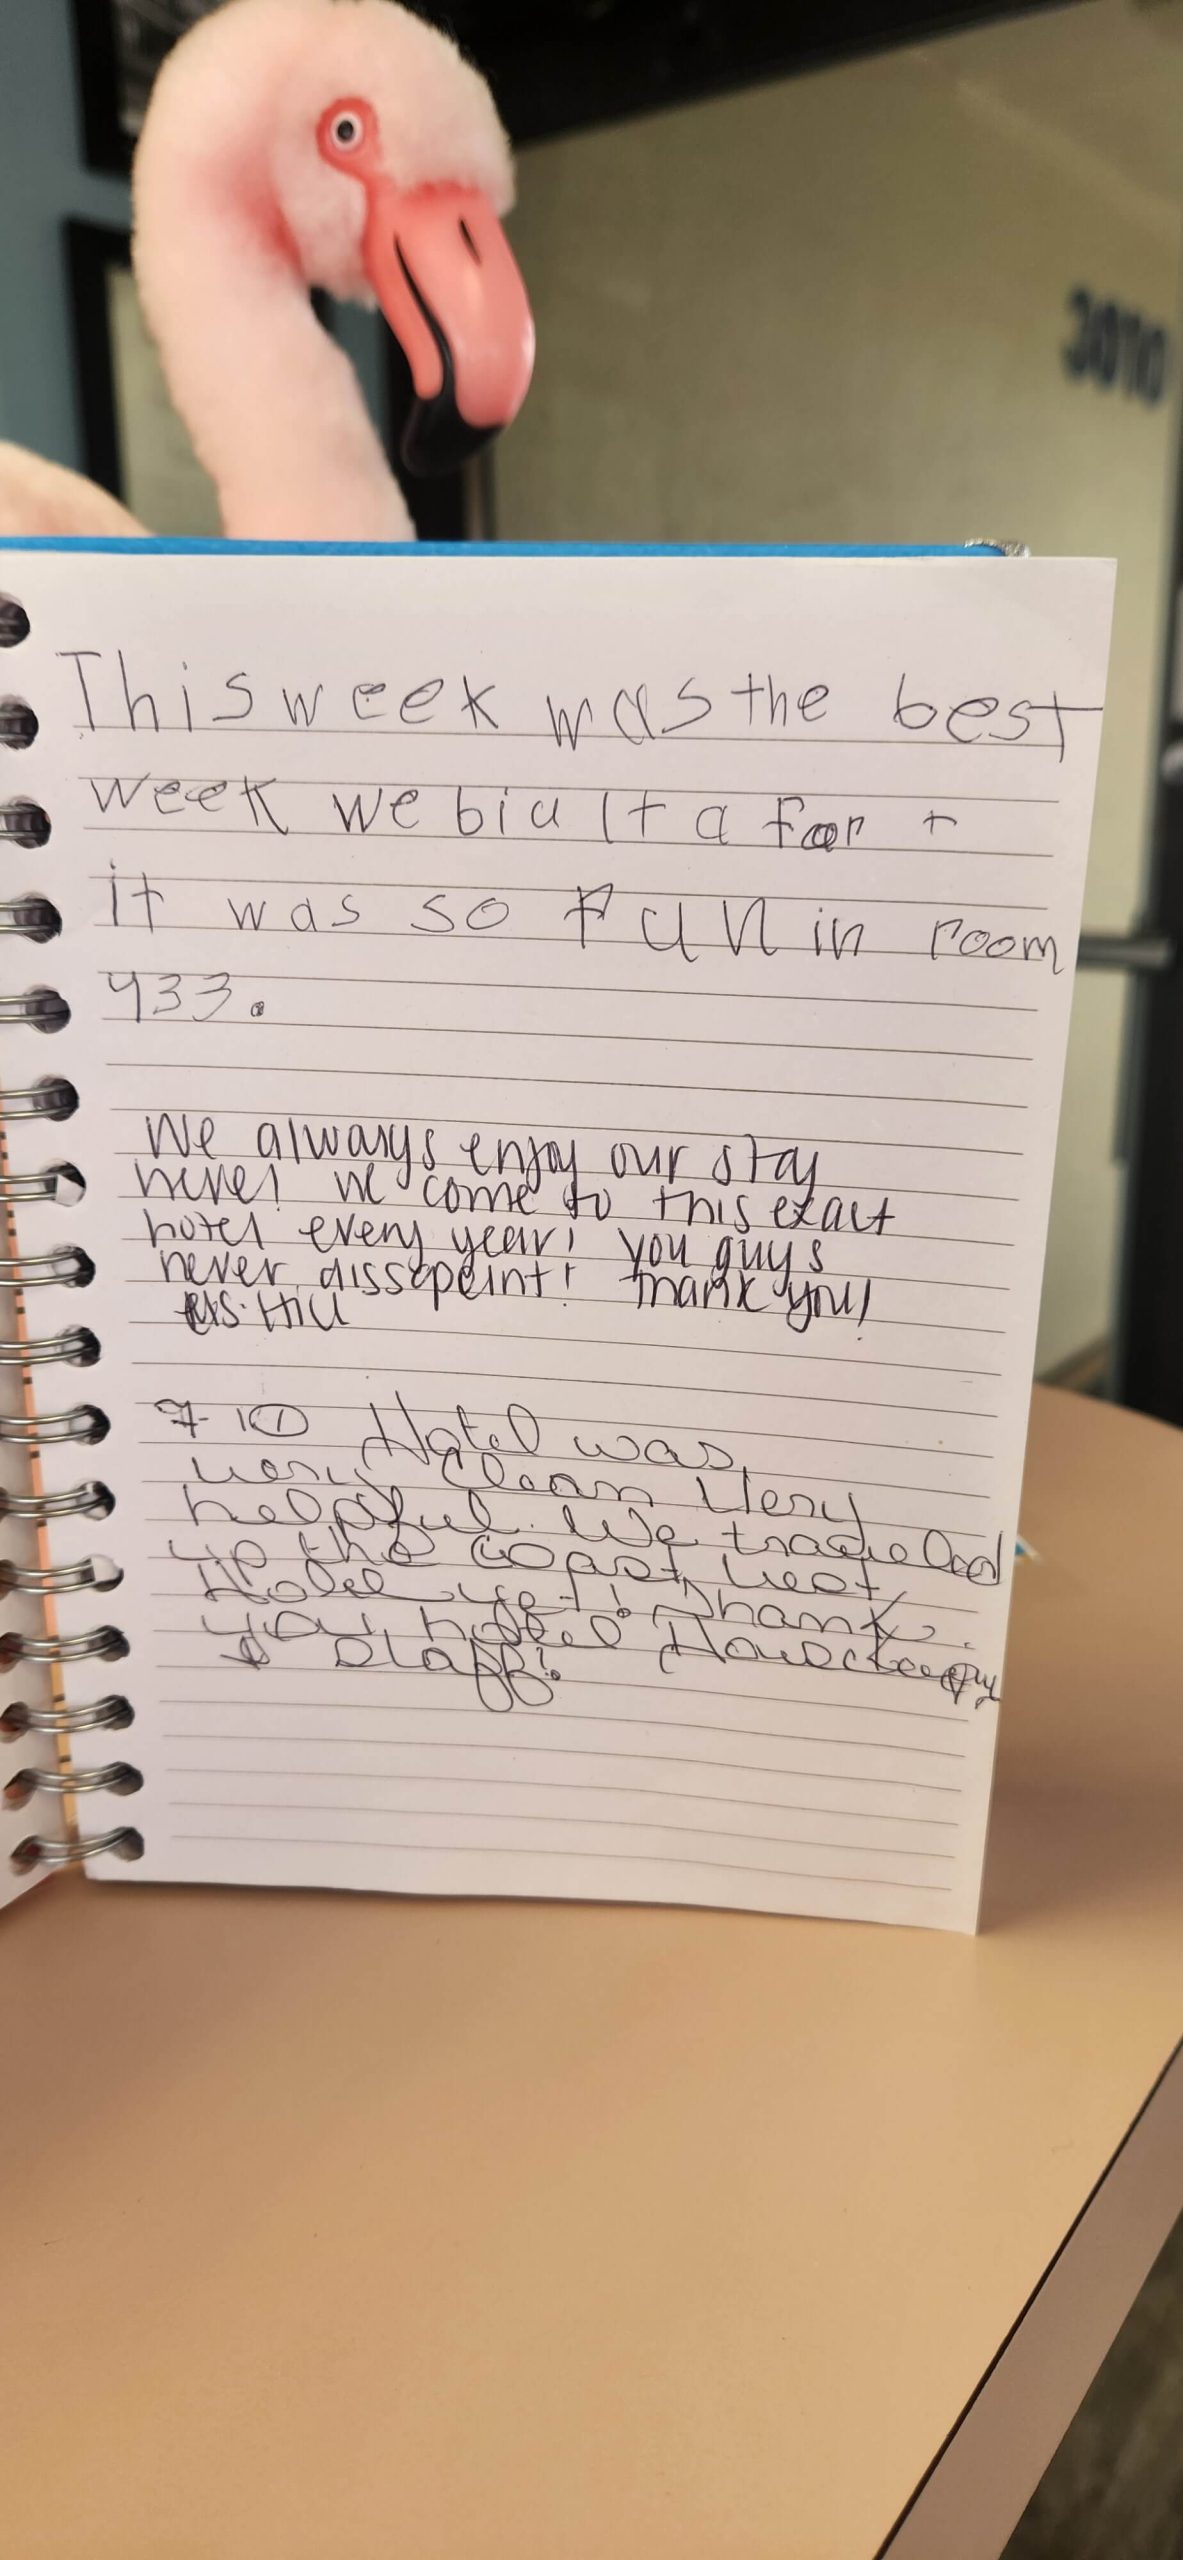 This week was the best
week we biult a fort
it was so Fun in room
433.
We always enjoy our stay
here! we come to this exact
hotel every year! you guys
never dissapeint! thank you!
Hill
Hotel was
very Clean Very
helpful. We traveled
up the coast, best
Hotel yet! Thank
you, hotel Housekeeping
& Staff!